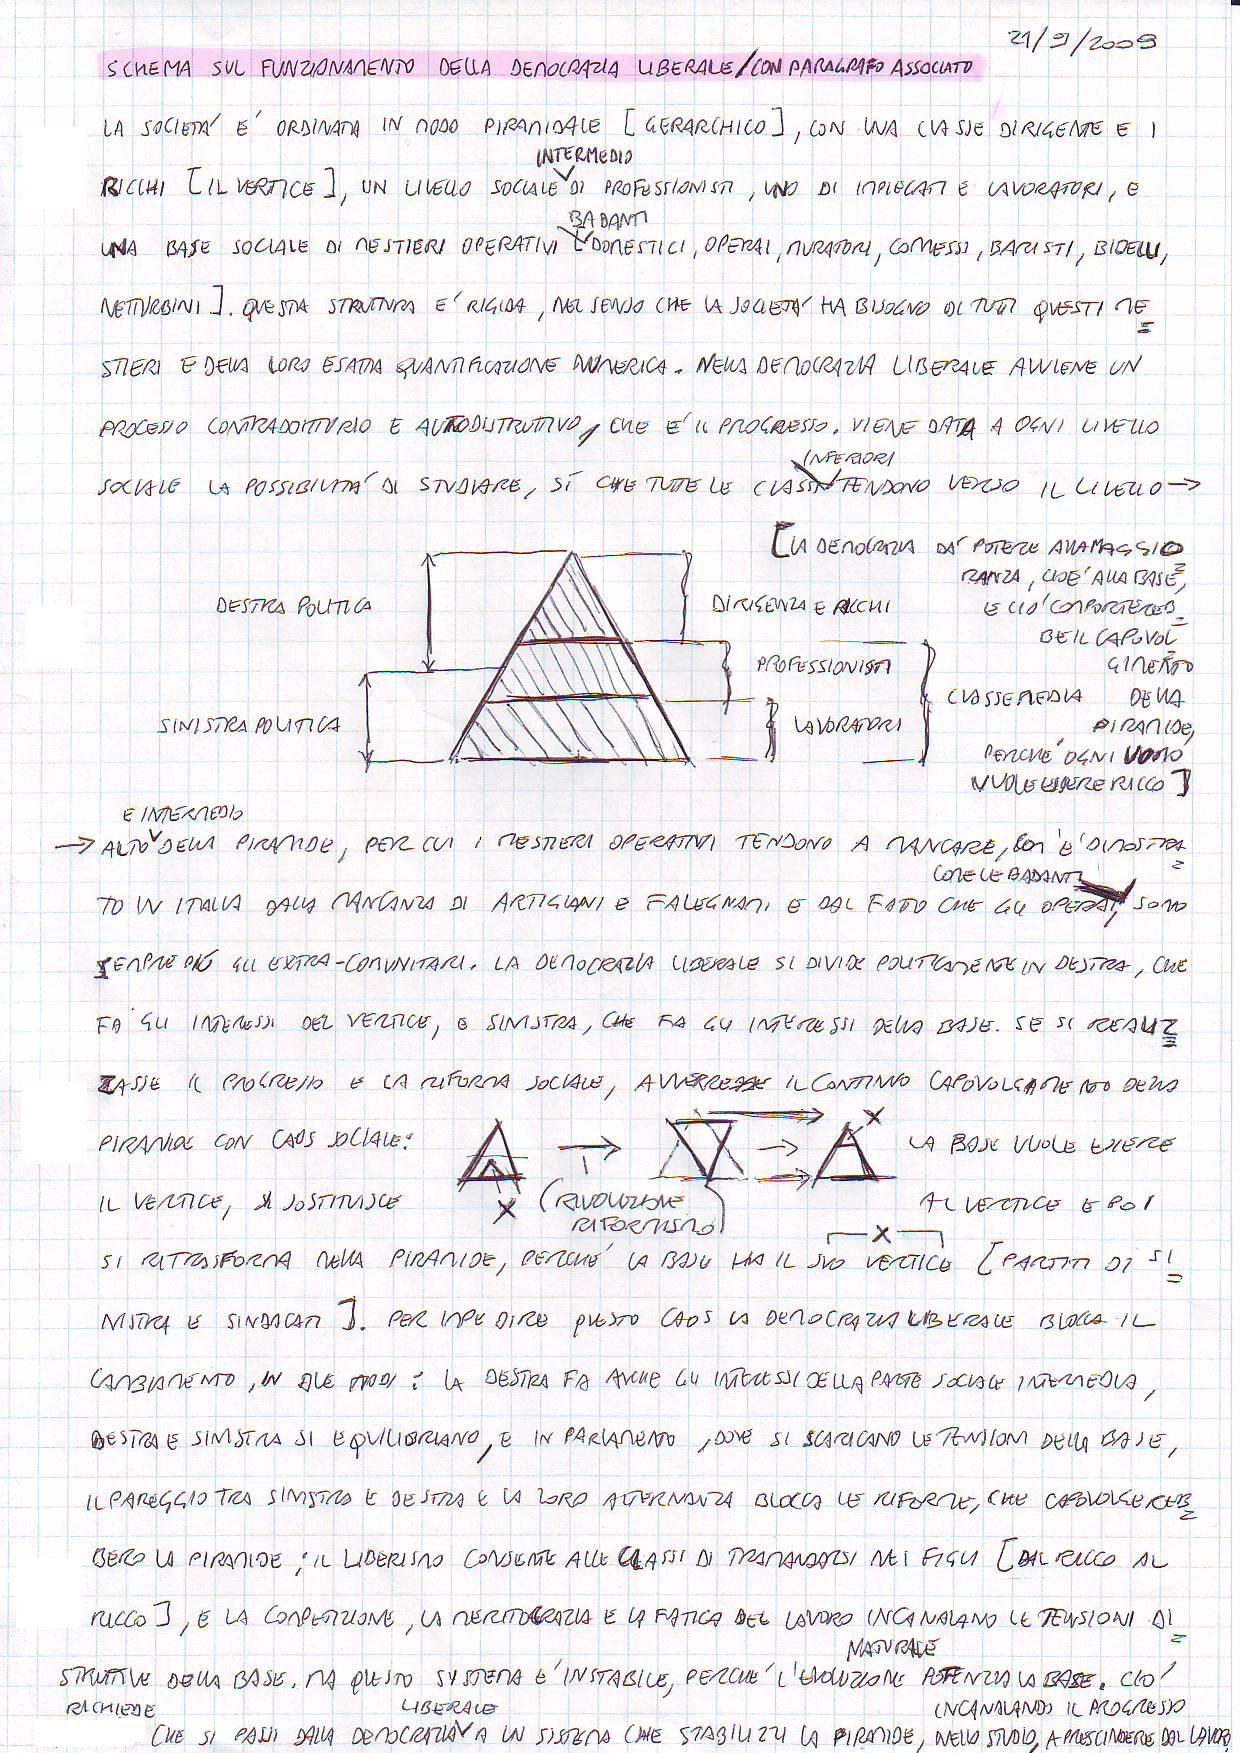 21/9/2009
SCHEMA SUL FUNZIONAMENTO DELLA DEMOCRAZIA LIBERALE/CON PARAGRAFO ASSOCIATO
LA SOCIETA' E' ORDINATA IN MODO PIRAMIDALE [GERARCHICO], CON UNA CLASSE DIRIGENTE E I
INTERMEDIO
RICCHI [IL VERTICE], UN LIVELLO SOCIALE DI PROFESSIONISTI, UNO DI IMPIEGATI E LAVORATORI, E
BADANTI
UNA BASE SOCIALE DI MESTIERI OPERATIVI [DOMESTICI, OPERAI, MURATORI, COMESSI, BARISTI, BIDELLI,
NETTURBINI]. QUESTA STRUTTURA E' RIGIDA, NEL SENSO CHE LA SOCIETA' HA BISOGNO DI TUTTI QUESTI ME=
STIERI E DELLA LORO ESATTA QUANTIFICAZIONE NUMERICA. NELLA DEMOCRAZIA LIBERALE AVVIENE UN
PROCESSO CONTRADDITTORIO E AUTODISTRUTTIVO, CHE E' IL PROGRESSO. VIENE DATA A OGNI LIVELLO
INFERIORI
SOCIALE LA POSSIBILITA' DI STUDIARE, SÌ CHE TUTTE LE CLASSI TENDONO VERSO IL LIVELLO →
[LA DEMOCRAZIA DA' POTERE ALLA MAGGIO=
RANZA, CIOE' ALLA BASE,
E CIO' COMPORTEREB=
BE IL CAPOVOL=
GIMENTO
DELLA
PIRAMIDE,
PERCHE' OGNI UOMO
VUOLE ESSERE RICCO]
DESTRA POLITICA
DIRIGENZA E RICCHI
PROFESSIONISTI
CLASSE MEDIA
SINISTRA POLITICA
LAVORATORI
E INTERMEDIO
→ ALTO DELLA PIRAMIDE, PER CUI I MESTIERI OPERATIVI TENDONO A MANCARE, COM'E' DIMOSTRA=
COME LE BADANTI
TO IN ITALIA DALLA MANCANZA DI ARTIGIANI E FALEGNAMI E DAL FATTO CHE GLI OPERAI, SONO
SEMPRE PIÙ GLI EXTRA-COMUNITARI. LA DEMOCRAZIA LIBERALE SI DIVIDE POLITICAMENTE IN DESTRA, CHE
FA GLI INTERESSI DEL VERTICE, E SINISTRA, CHE FA GLI INTERESSI DELLA BASE. SE SI REALIZ=
ZASSE IL PROGRESSO E LA RIFORMA SOCIALE, AVVERREBBE IL CONTINUO CAPOVOLGIMENTO DELLA
PIRAMIDE CON CAOS SOCIALE: X → → X LA BASE VUOLE ESSERE
IL VERTICE, SI SOSTITUISCE (RIVOLUZIONE RIFORMISMO) AL VERTICE E POI
X
SI RITRASFORMA NELLA PIRAMIDE, PERCHE' LA BASE HA IL SUO VERTICE [PARTITI DI SI=
NISTRA E SINDACATI]. PER IMPEDIRE QUESTO CAOS LA DEMOCRAZIA LIBERALE BLOCCA IL
CAMBIAMENTO, IN DUE MODI: LA DESTRA FA ANCHE GLI INTERESSI DELLA PARTE SOCIALE INTERMEDIA,
DESTRA E SINISTRA SI EQUILIBRIANO, E IN PARLAMENTO, DOVE SI SCARICANO LE TENSIONI DELLA BASE,
IL PAREGGIO TRA SINISTRA E DESTRA E LA LORO ALTERNANZA BLOCCA LE RIFORME, CHE CAPOVOLGEREB=
BERO LA PIRAMIDE; IL LIBERISMO CONSENTE ALLE CLASSI DI TRAMANDARSI NEI FIGLI [DAL RICCO AL
RICCO], E LA COMPETIZIONE, LA MERITOCRAZIA E LA FATICA DEL LAVORO INCANALANO LE TENSIONI DI=
NATURALE
STRUTTIVE DELLA BASE. MA QUESTO SYSTEMA E' INSTABILE, PERCHE' L'EVOLUZIONE POTENZIA LA BASE. CIO'
RICHIEDE LIBERALE INCANALANDO IL PROGRESSO
CHE SI PASSI DALLA DEMOCRAZIA A UN SISTEMA CHE STABILIZZI LA PIRAMIDE, NELLO STUDIO, A PRESCINDERE DAL LAVORO,